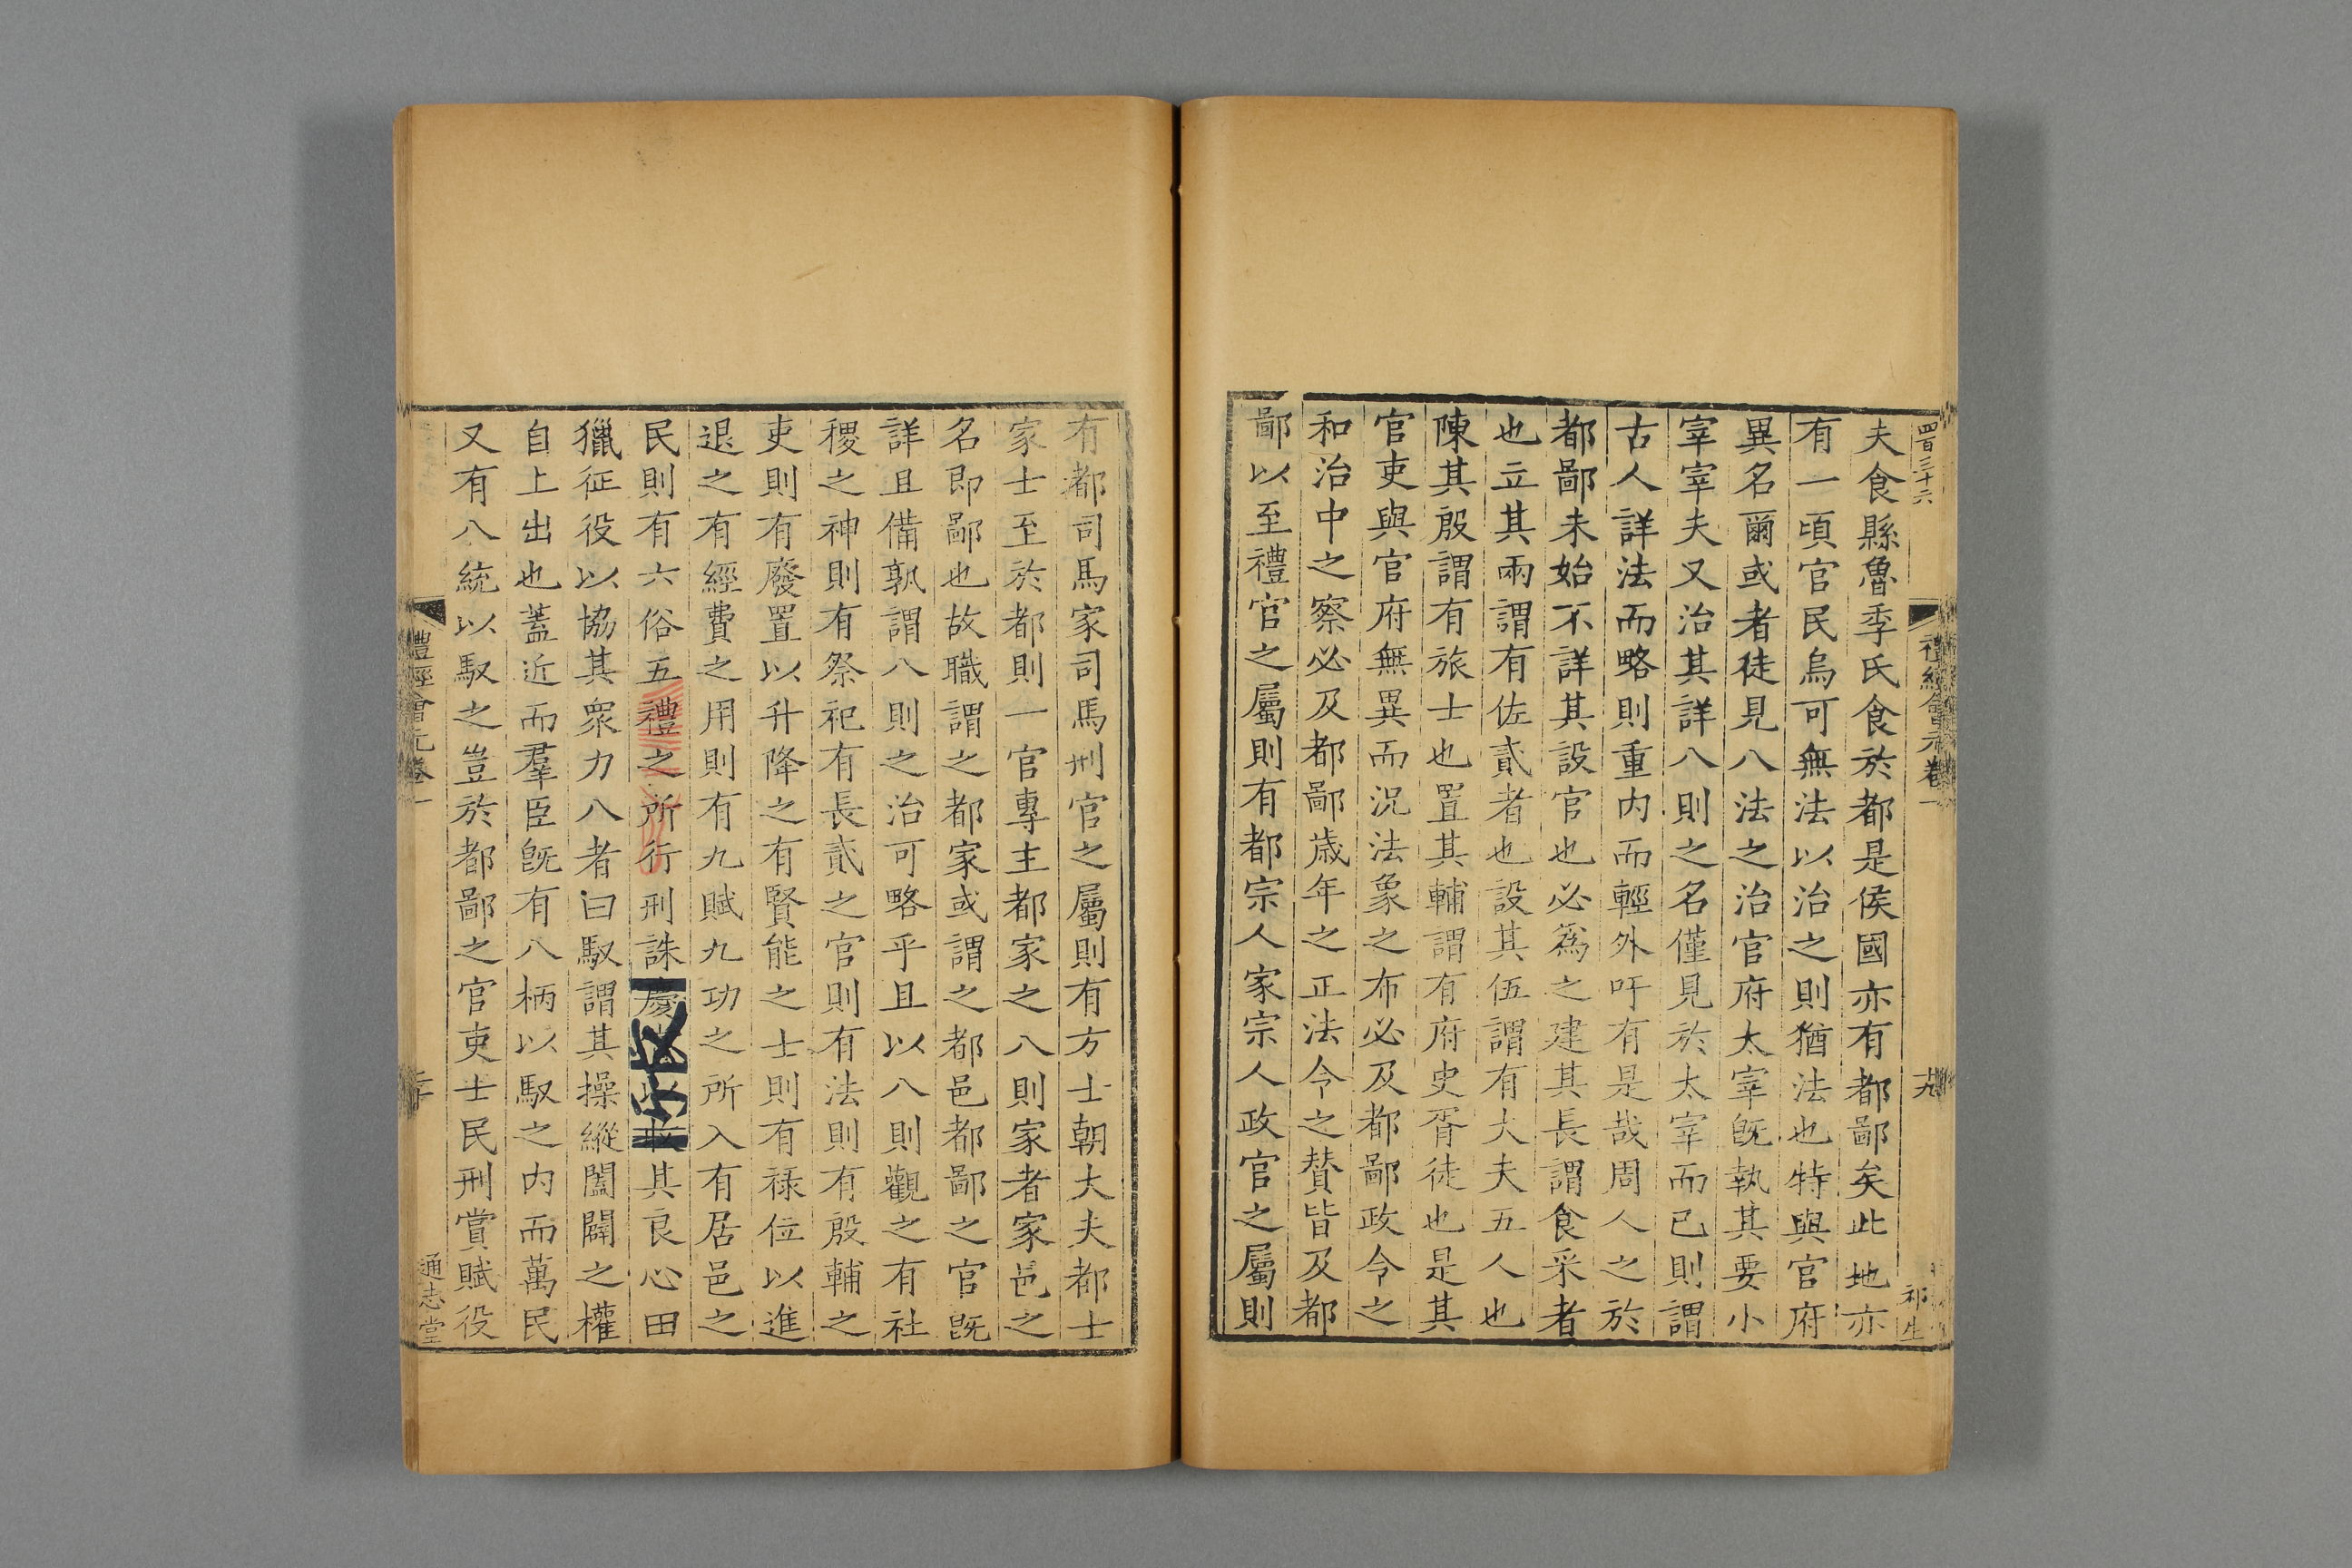 四百三十六
禮經會元卷一
十九
祁生
夫食縣魯季氏食於都是侯國亦有都鄙矣此地亦
有一頃官民烏可無法以治之則猶法也特與官府
異名爾或者徒見八法之治官府太宰旣執其要小
宰宰夫又治其詳八則之名僅見於太宰而已則謂
古人詳法而略則重內而輕外吁有是哉周人之於
都鄙未始不詳其設官也必爲之建其長謂食采者
也立其兩謂有佐貳者也設其伍謂有大夫五人也
陳其殷謂有旅士也置其輔謂有府史胥徒也是其
官吏與官府無異而況法象之布必及都鄙政令之
和治中之察必及都鄙歳年之正法令之賛皆及都
鄙以至禮官之屬則有都宗人家宗人政官之屬則
有都司馬家司馬刑官之屬則有方士朝大夫都士
家士至於都則一官專主都家之八則家者家邑之
名即鄙也故職謂之都家或謂之都邑都鄙之官旣
詳且備孰謂八則之治可略乎且以八則觀之有社
稷之神則有祭祀有長貳之官則有法則有殷輔之
吏則有廢置以升降之有賢能之士則有祿位以進
退之有經費之用則有九賦九功之所入有居邑之
民則有六俗五禮之所行刑誅慶其良心田
獵征役以協其衆力八者曰馭謂其操縱闔闢之權
自上出也蓋近而羣臣旣有八柄以馭之內而萬民
又有八統以馭之豈於都鄙之官吏士民刑賞賦役
禮經會元卷一
二十
通志堂